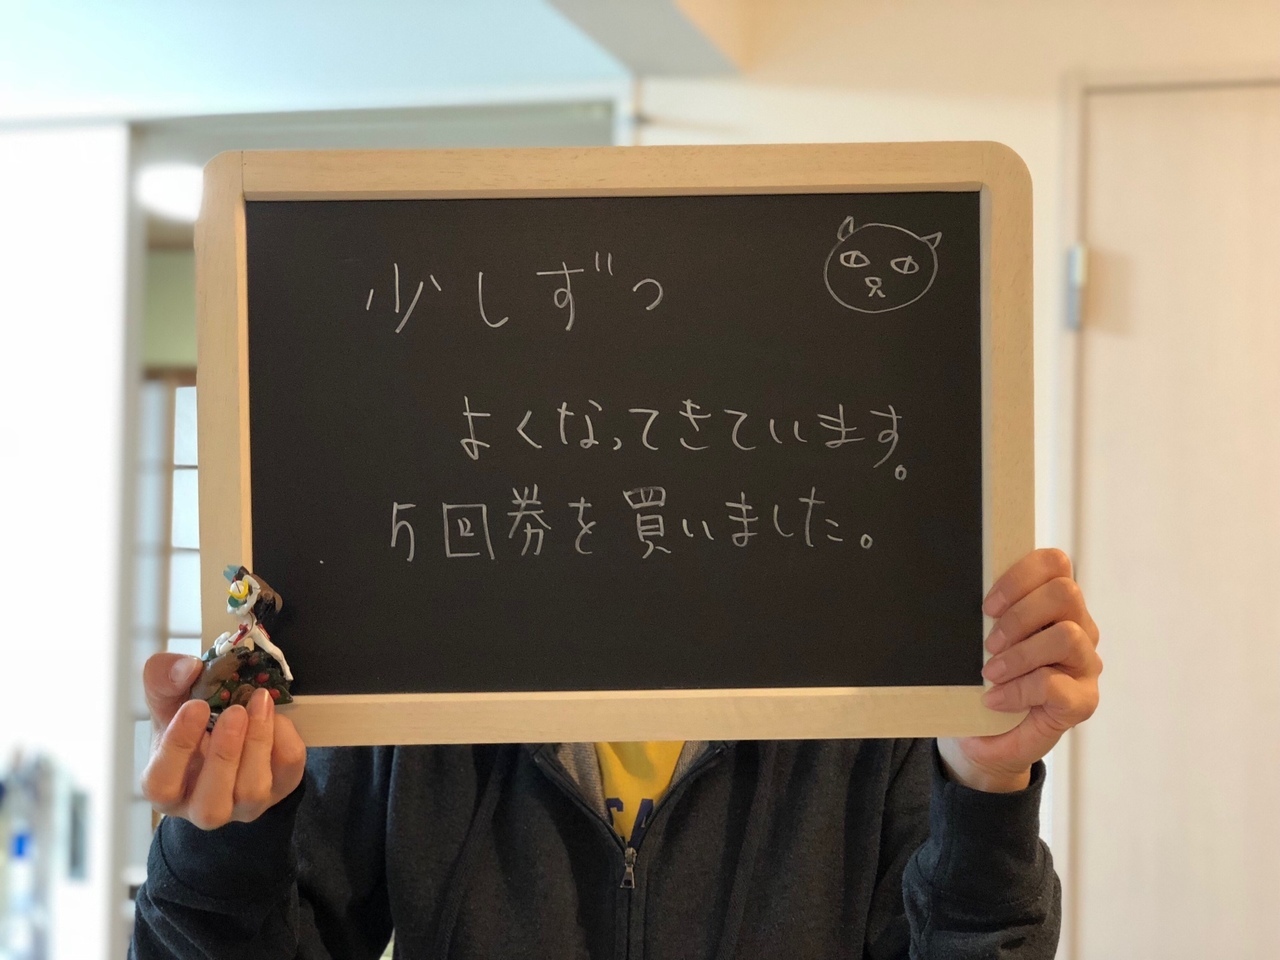 少しずつ
よくなってきています。
5回券を買いました。